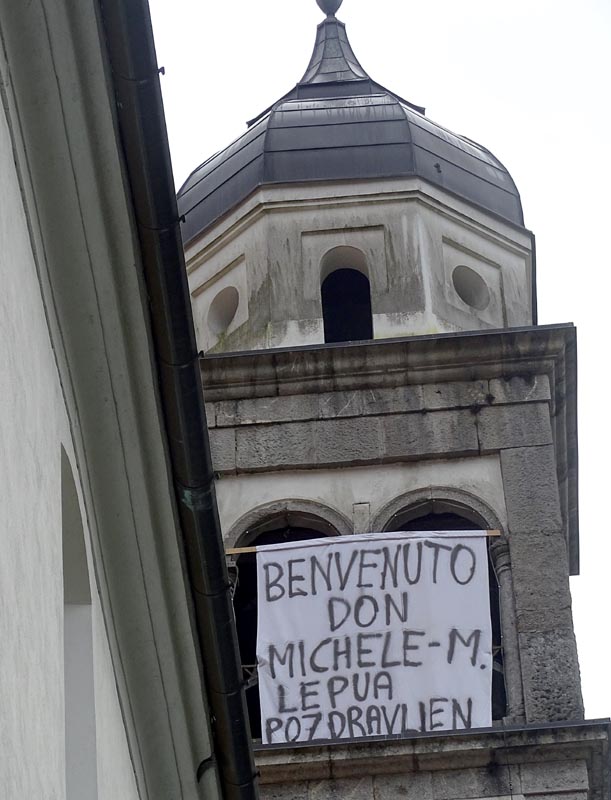 BENVENUTO
DON
MICHELE-M.
LEPUA
POZDRAVLIEN